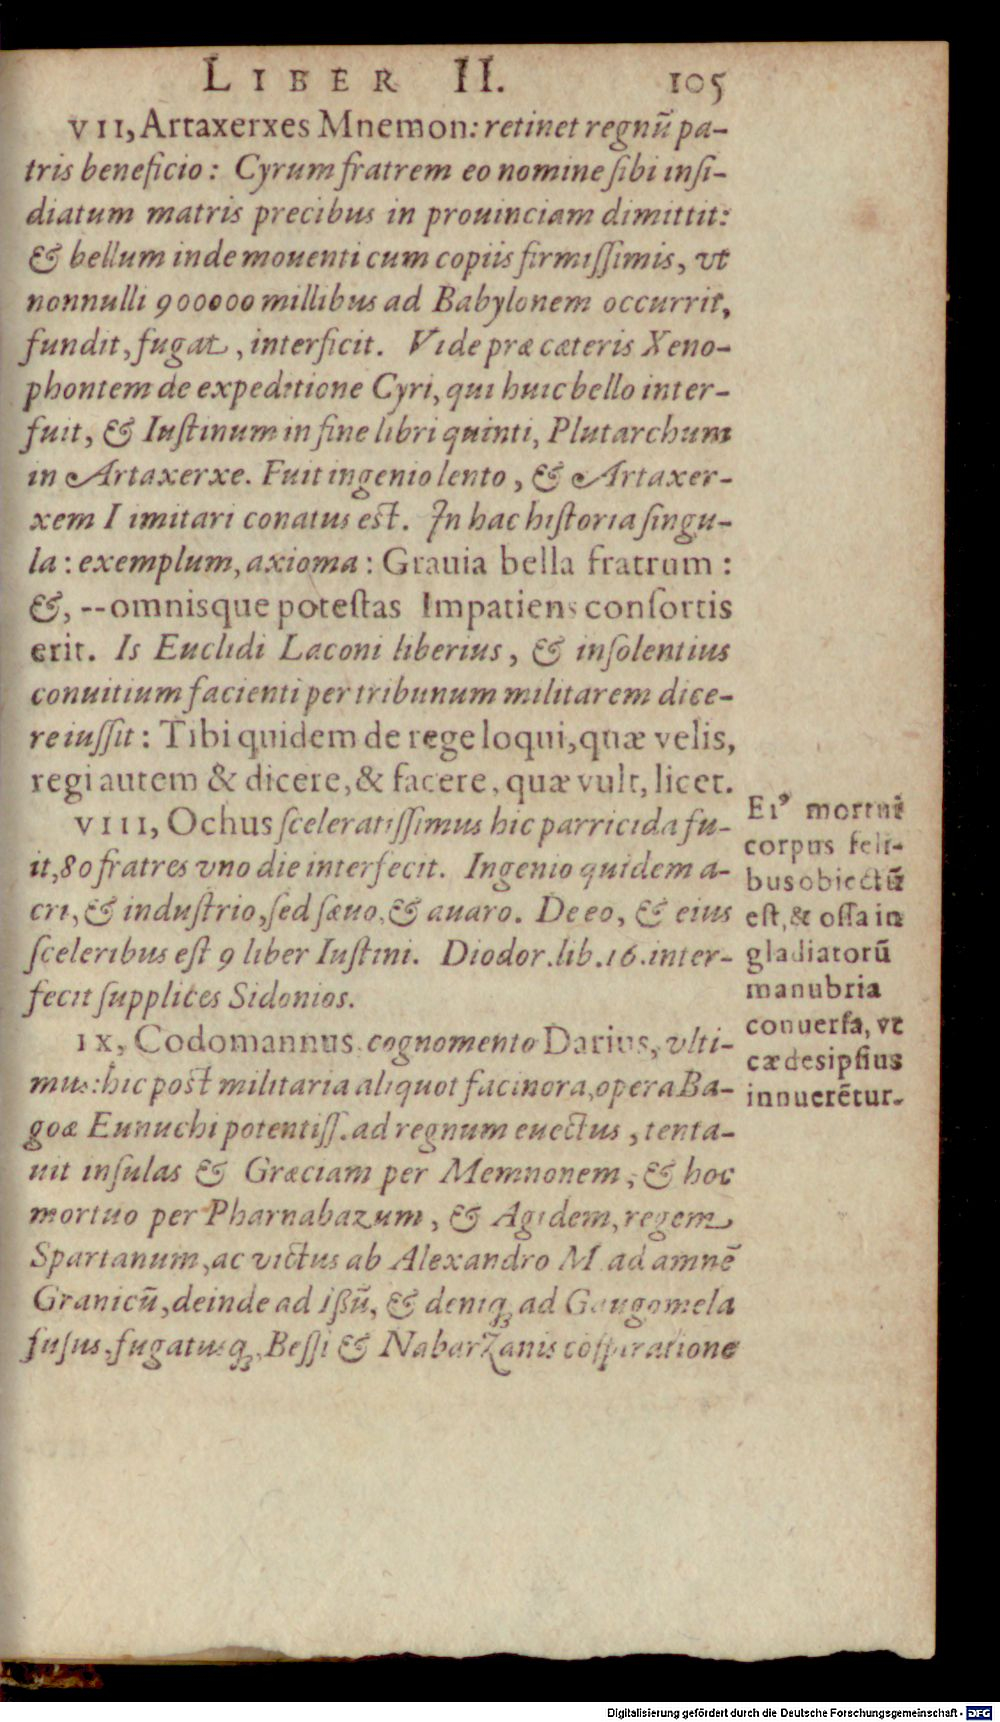 LIBER II. 105
VII, Artaxerxes Mnemon: retinet regnū pa-
tris beneficio: Cyrum fratrem eo nomine sibi insi-
diatum matris precibus in prouinciam dimittit:
& bellum inde mouenti cum copiis firmissimis, vt
nonnulli 900000 millibus ad Babylonem occurrit,
fundit, fugat, interficit. Vide præ cæteris Xeno-
phontem de expeditione Cyri, qui huic bello inter-
fuit, & Iustinum in fine libri quinti, Plutarchum
in Artaxerxe. Fuit ingenio lento, & Artaxer-
xem I imitari conatus est. In hac historia singu-
la: exemplum, axioma: Grauia bella fratrum:
&, --omnisque potestas Impatiens consortis
erit. Is Euclidi Laconi liberius, & insolentius
conuitium facienti per tribunum militarem dice-
re iussit: Tibi quidem de rege loqui, quæ velis,
regi autem & dicere, & facere, quæ vult, licet.
VIII, Ochus sceleratissimus hic parricida fu-
it, 80 fratres vno die interfecit. Ingenio quidem a-
cri, & industrio, sed sæuo, & auaro. De eo, & eius
sceleribus est 9 liber Iustini. Diodor. lib. 16. inter-
fecit supplices Sidonios.
IX, Codomannus cognomento Darius, vlti-
mus: hic post militaria aliquot facinora, opera Ba-
goæ Eunuchi potentiss. ad regnum euectus, tenta-
uit insulas & Græciam per Memnonem, & hoc
mortuo per Pharnabazum, & Agidem, regem
Spartanum, ac victus ab Alexandro M. ad amnē
Granicū, deinde ad Ißū, & deniq; ad Gaugomela
fusus, fugatusq;, Bessi & Nabarzanis cōspiratione
Eiꝰ mortui
corpus feli-
bus obiectū
est, & ossa in
gladiatorū
manubria
conuersa, vt
cædes ipsius
innuerētur.
Digitalisierung gefördert durch die Deutsche Forschungsgemeinschaft - DFG